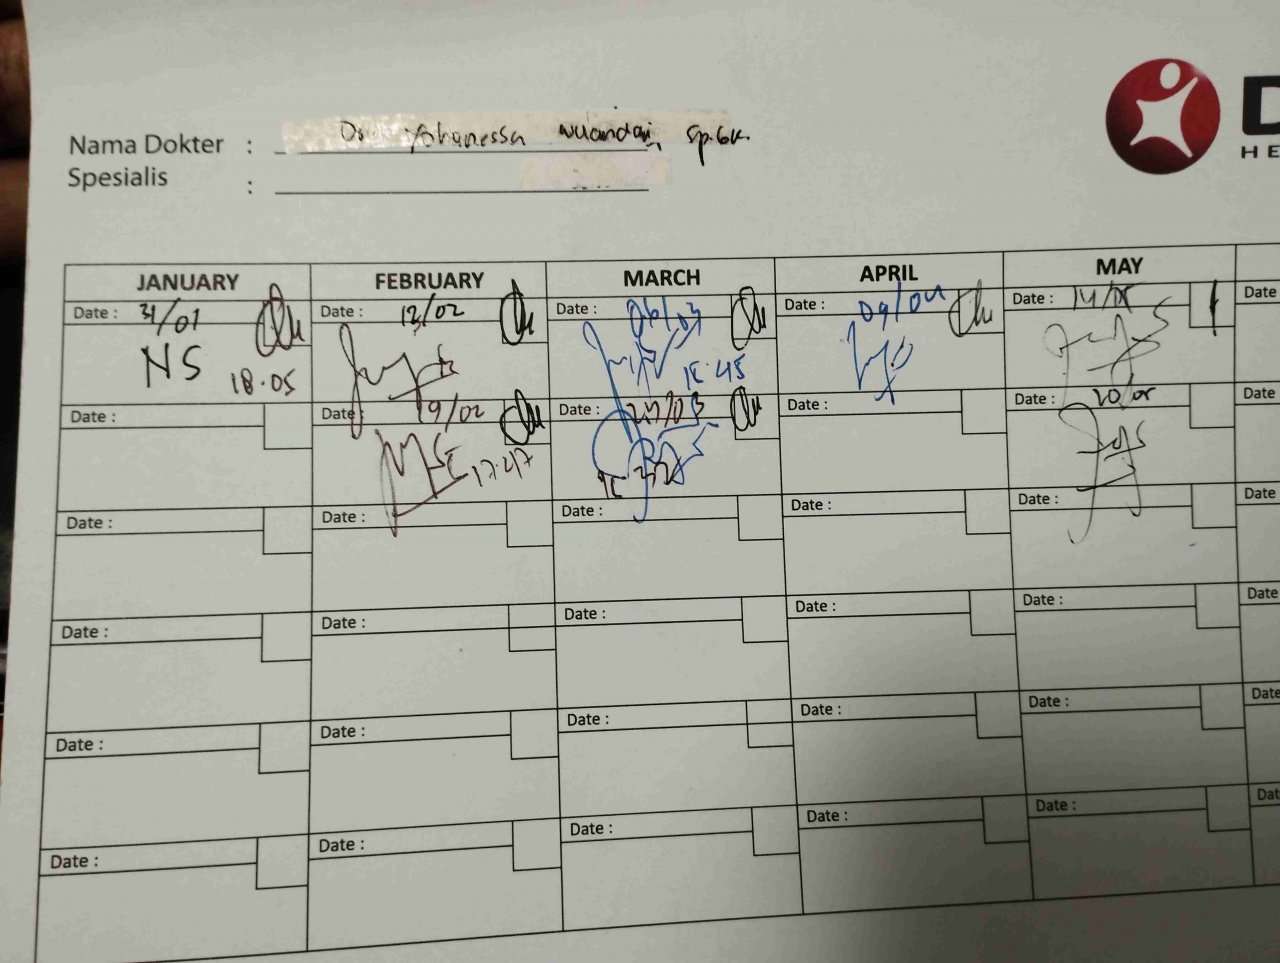 Nama Dokter : Yohanessa Wulandari, Sp.GK.
Spesialis :
D
HE
JANUARY FEBRUARY MARCH APRIL MAY
Date : 31/01 Date : 13/02 Date : 06/03 Date : 09/04 Date : 14/05 Date
NS 18.05 15.45
Date : Date : 19/02 Date : 27/03 Date : Date : 20/05 Date
17.47
Date : Date : Date : Date : Date : Date
Date : Date : Date : Date : Date : Date
Date : Date : Date : Date : Date : Date
Date : Date : Date : Date : Date : Dat